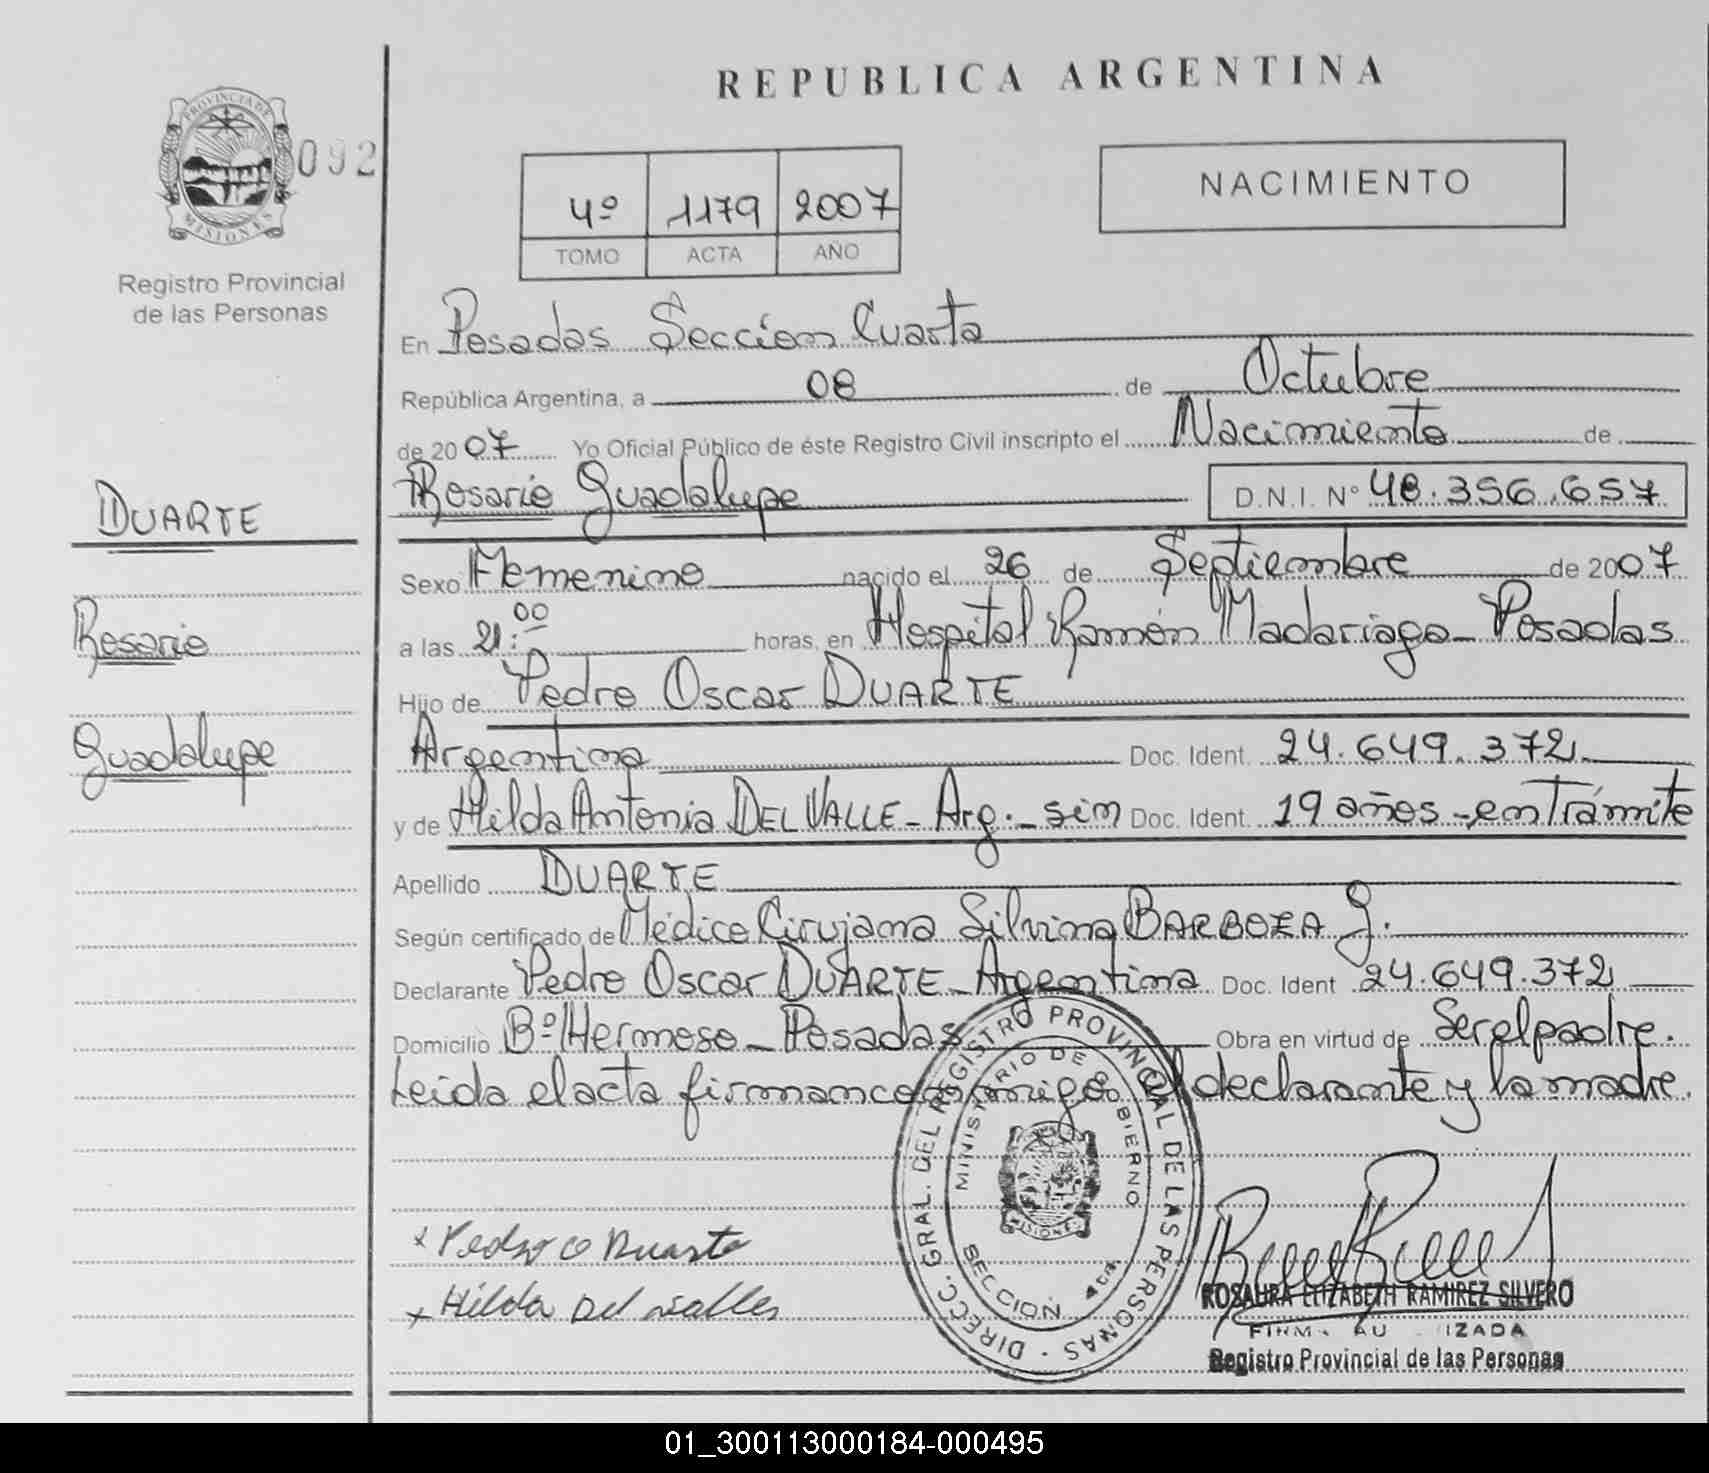 REPUBLICA ARGENTINA
PROVINCIA DE
MISIONES
092
Registro Provincial
de las Personas
4º 1179 2007
TOMO ACTA AÑO
NACIMIENTO
En Posadas Sección Cuarta
República Argentina, a 08 de Octubre
de 2007 Yo Oficial Público de éste Registro Civil inscripto el Nacimiento de
Rosario Guadalupe D.N.I. Nº 48.356.657
DUARTE
Rosario
Guadalupe
Sexo Femenino nacido el 26 de Septiembre de 2007
a las 21:00 horas, en Hospital Ramón Madariaga - Posadas
Hijo de Pedro Oscar DUARTE
Argentina Doc. Ident. 24.649.372
y de Hilda Antonia DEL VALLE - Arg. - sin Doc. Ident. 19 años - en Trámite
Apellido DUARTE
Según certificado de Médico Cirujana Silvina BARBOZA G.
Declarante Pedro Oscar DUARTE - Argentina Doc. Ident 24.649.372
Domicilio Bº Hermoso - Posadas Obra en virtud de Ser el padre.
Leida el acta firman conmigo el declarante y la madre.
x Pedro O Duarte
x Hilda Del Valle
DIRECC. GRAL. DEL REGISTRO PROVINCIAL DE LAS PERSONAS
MINISTERIO DE GOBIERNO
MISIONES
SECCION 4ta
ROSAURA ELIZABETH RAMIREZ SILVERO
FIRMA AU IZADA
Registro Provincial de las Personas
01_300113000184-000495